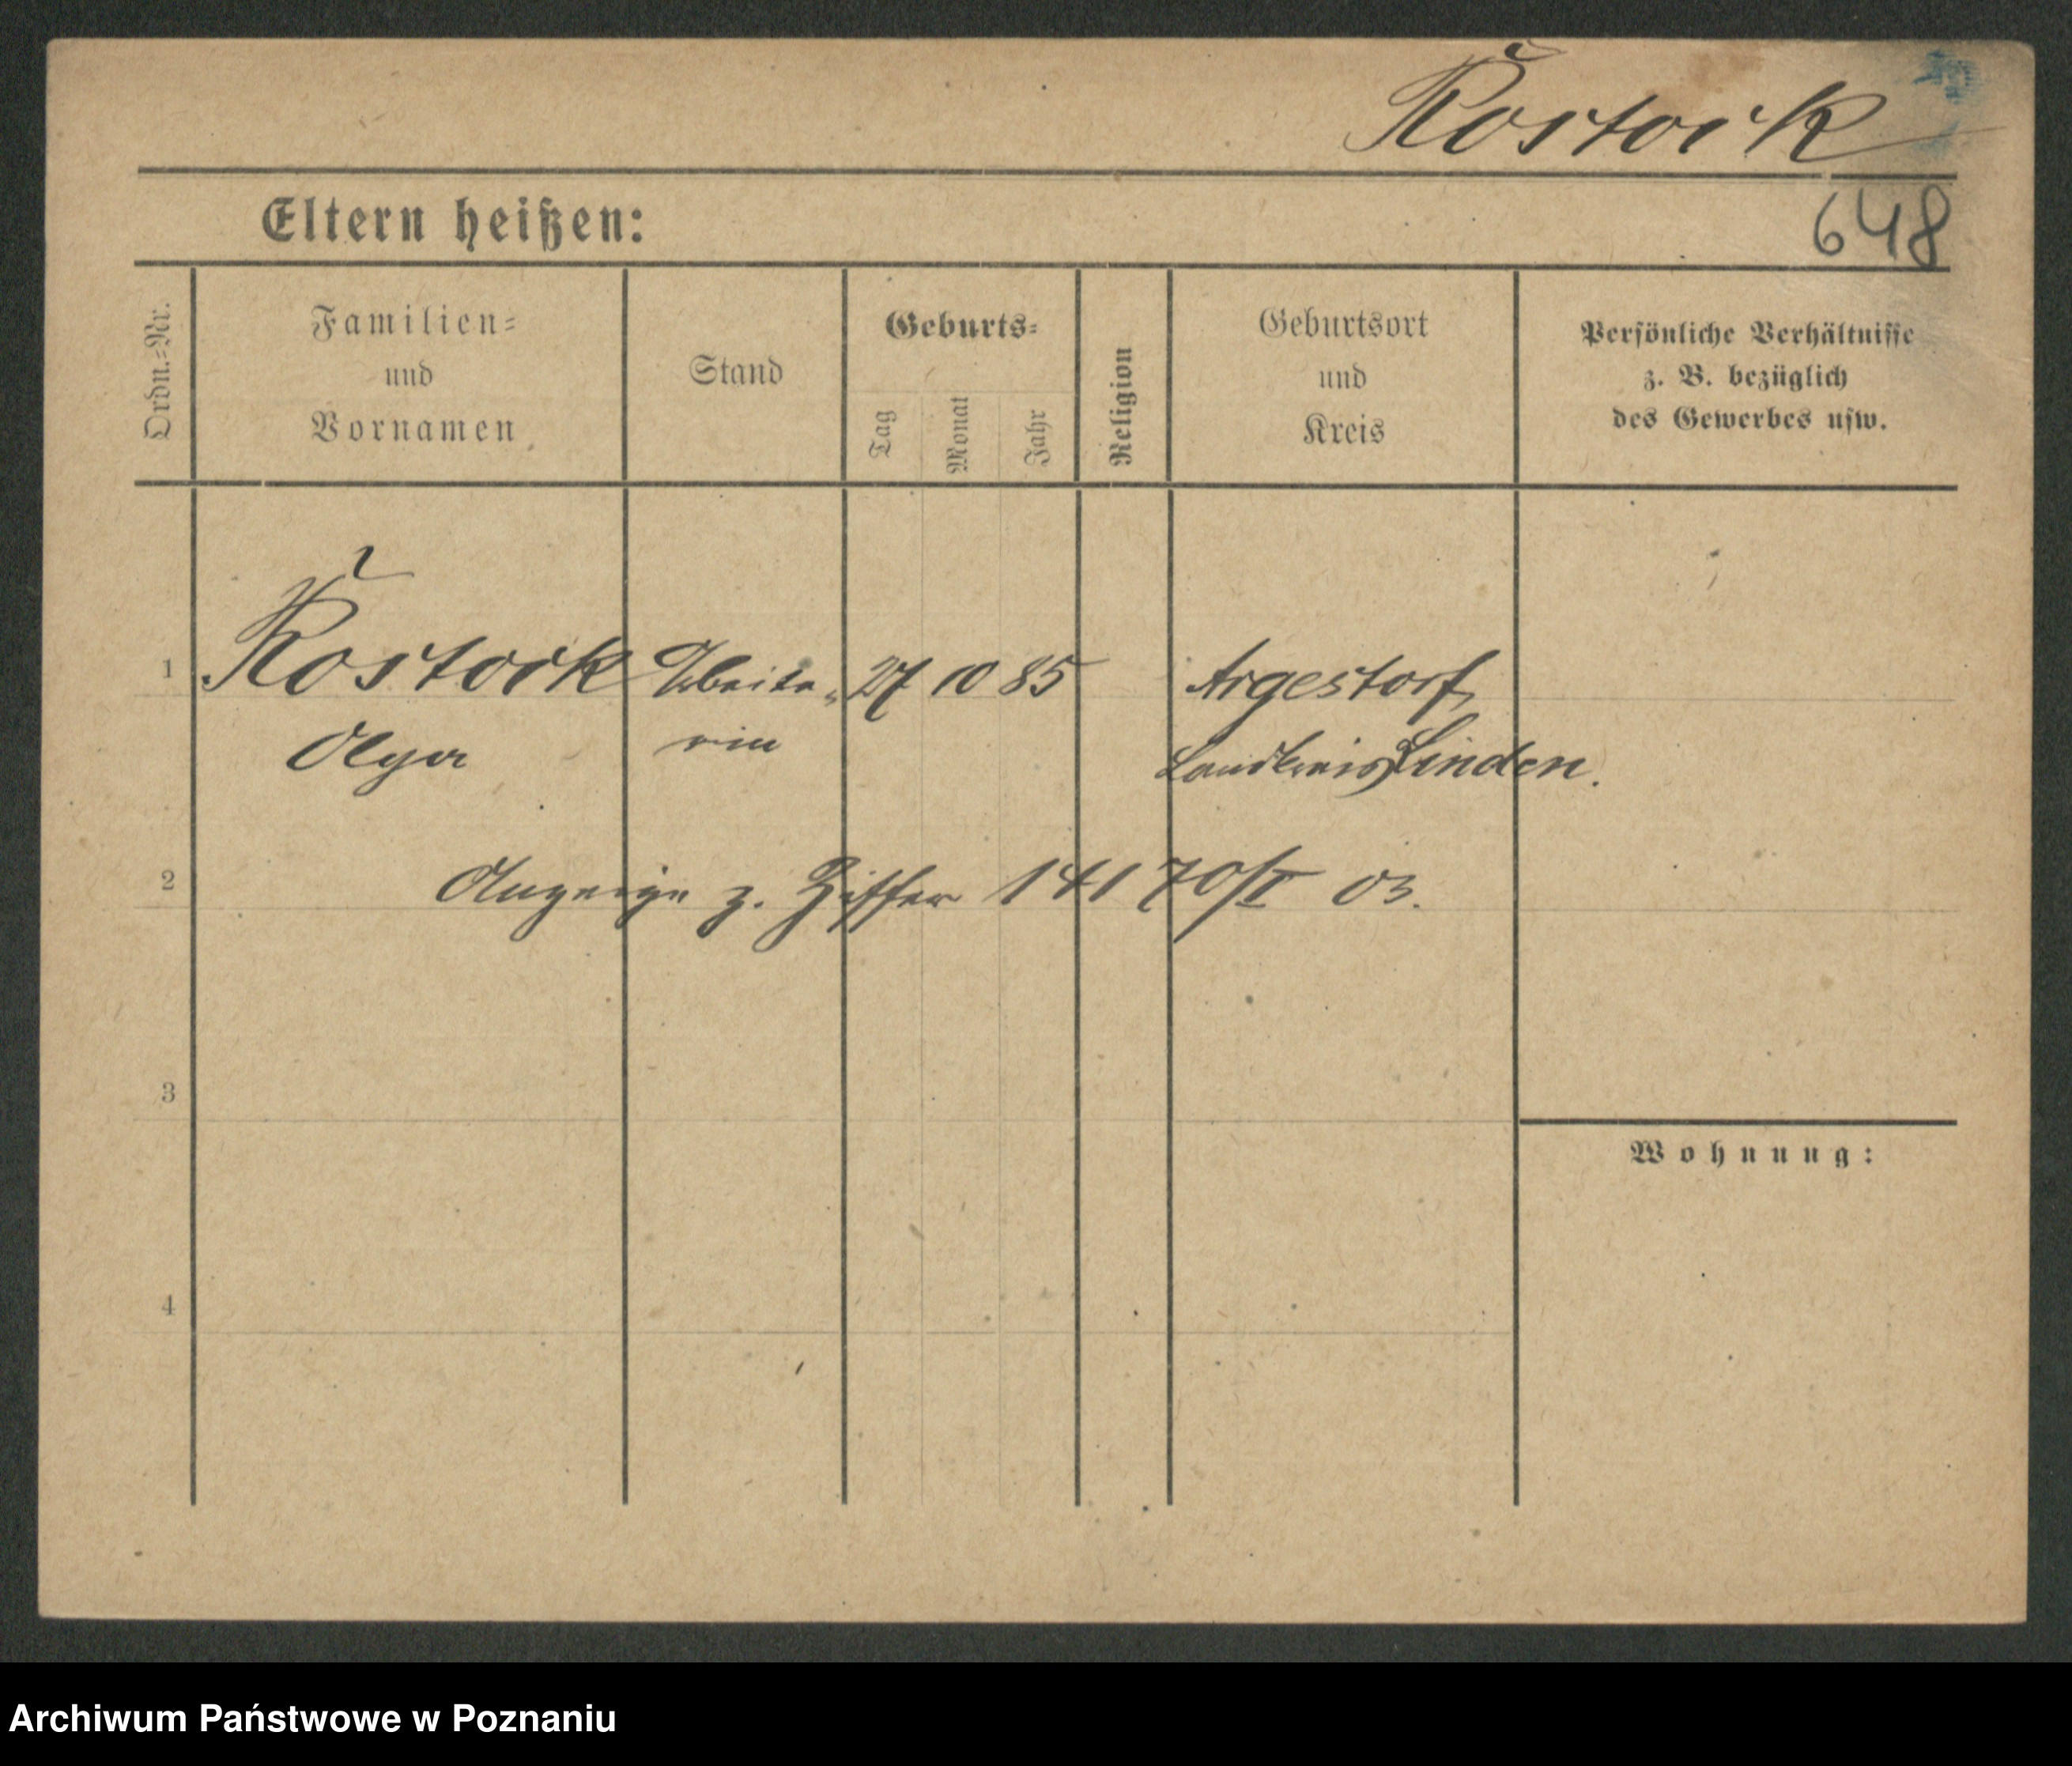 Rostock
Eltern heißen:
648
Ordn.=Nr.
Familien=
und
Vornamen
Stand
Geburts=
Tag
Monat
Jahr
Religion
Geburtsort
und
Kreis
Persönliche Verhältnisse
z. B. bezüglich
des Gewerbes usw.
1 Rostock Arbeite- 27 10 85 Argestorf,
Olga rin Landkreis Linden.
2 Anzeige z. Ziffer 14170/I 03.
3
Wohnung:
4
Archiwum Państwowe w Poznaniu